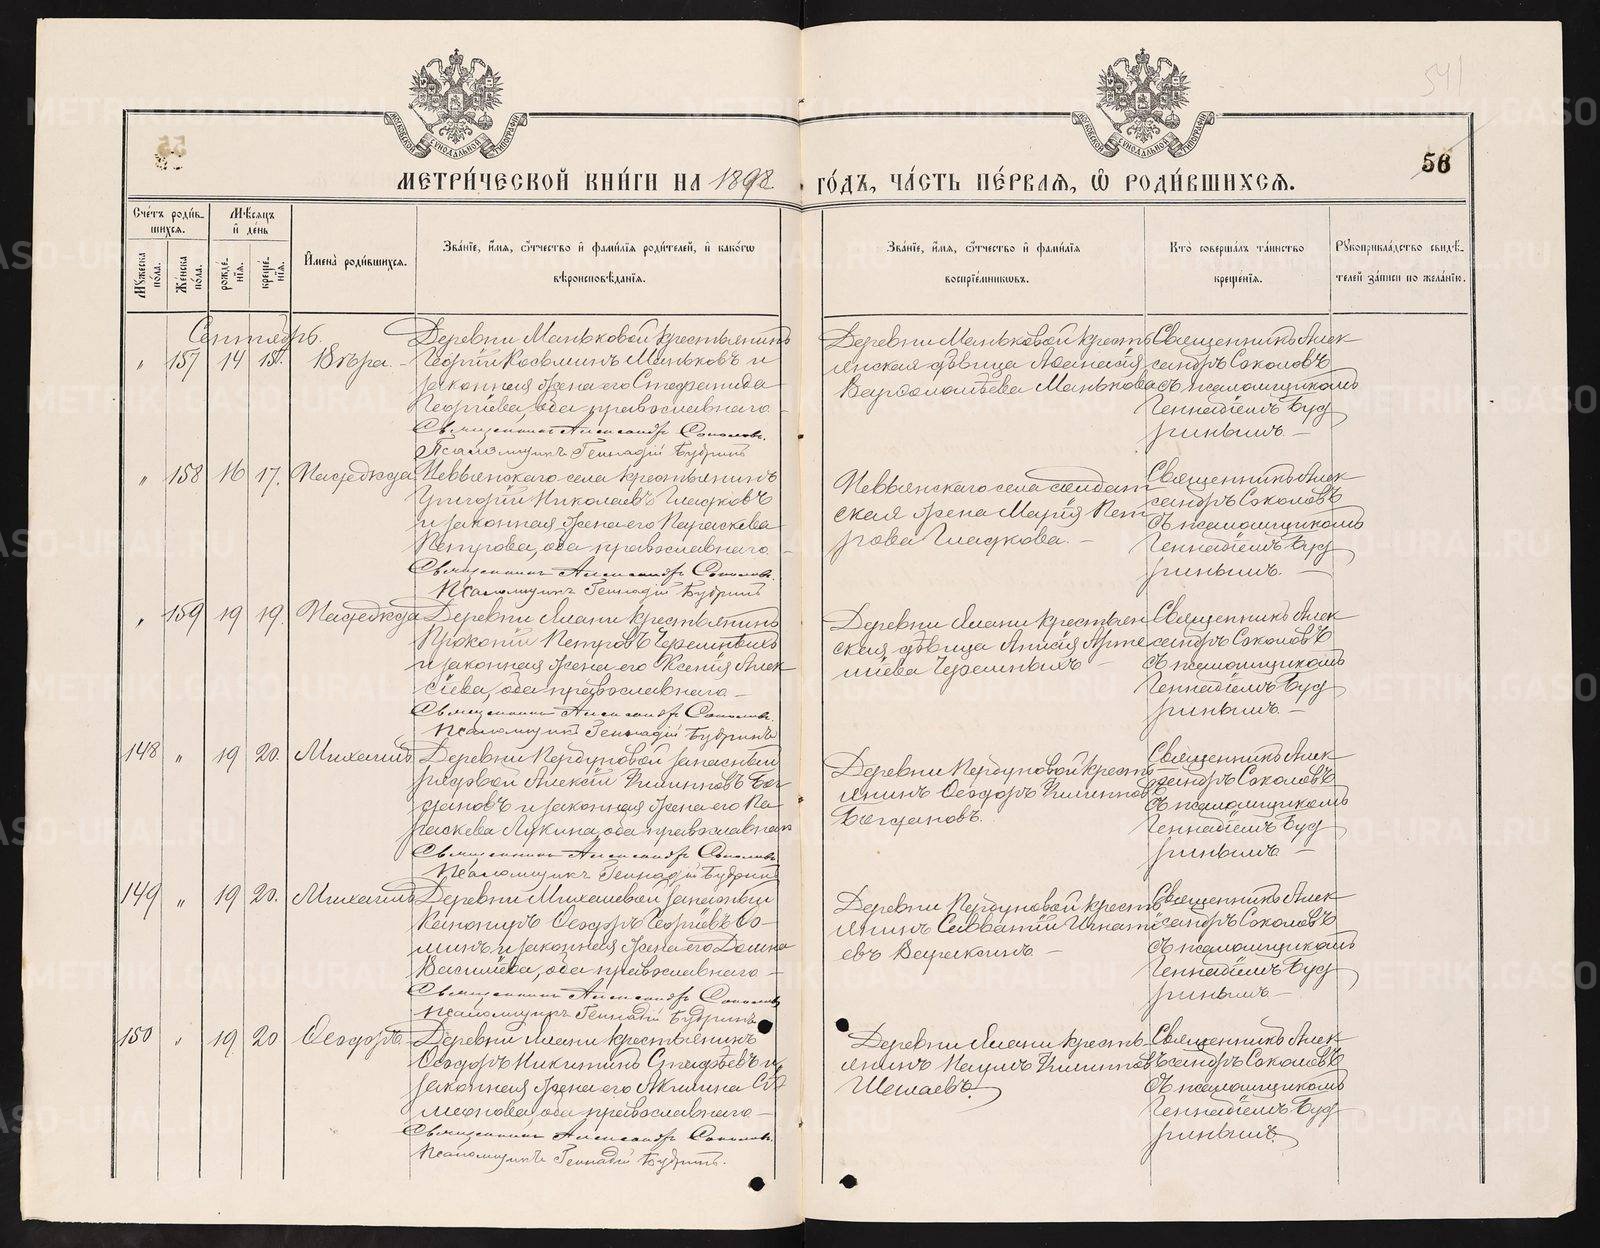 541
55
56
МОСКОВСКОЙ СѴНОДАЛЬНОЙ ТИПОГРАФІИ
МОСКОВСКОЙ СѴНОДАЛЬНОЙ ТИПОГРАФІИ
МЕТРИ́ЧЕСКОЙ КНИ́ГИ НА 1892
ГО́ДЪ, ЧА́СТЬ ПЕ́РВАѦ, Ѡ РОДИ́ВШИХСѦ.
Сче́тъ роди́в-
шихсѧ.
Мѣ́сѧцъ
и҆ де́нь
Мꙋ́жеска
по́ла.
Же́нска
по́ла.
рожде́-
нїѧ.
креще́-
нїѧ.
И҆мена̀ роди́вшихсѧ.
Зва́нїе, и҆́мѧ, ѻ҆́тчество и҆ фами́лїѧ роди́телей, и҆ како́гѡ
вѣроисповѣ́данїѧ.
Зва́нїе, и҆́мѧ, ѻ҆́тчество и҆ фами́лїѧ
воспрїе́мникѡвъ.
Кто̀ соверша́лъ та́инство
креще́нїѧ.
Рꙋкоприкла́дство свидѣ́-
телей за́писи по жела́нїю.
Сентябрь.
„ 157 14 15. Вѣра. –
Деревни Маньковой крестьянинъ
Георгій Косьминъ Маньковъ и
законная жена его Стефанида
Георгіева, оба православнаго –
Священникъ Александръ Соколовъ.
Псаломщикъ Геннадій Будринъ
Деревни Маньковой кресть
янская дѣвица Аѳанасія
Варѳоломѣева Манькова
Священникъ Алек
сандръ Соколовъ
съ псаломщикомъ
Геннадіемъ Буд
ринымъ. –
„ 158 16 17. Надежда
Невьянскаго села крестьянинъ
Григорій Николаевъ Гладковъ
и законная жена его Параскева
Петрова, оба православнаго –
Священникъ Александръ Соколовъ.
Псаломщикъ Геннадій Будринъ
Невьянскаго села солдат
ская жена Марія Пет
рова Гладкова. –
Священникъ Алек
сандръ Соколовъ
съ псаломщикомъ
Геннадіемъ Буд
ринымъ. –
„ 159 19 19. Надежда
Деревни Ялани крестьянинъ
Прокопій Петровъ Черемныхъ
и законная жена его Ксенія Алек
сіева, оба православнаго –
Священникъ Александръ Соколовъ.
Псаломщикъ Геннадій Будринъ
Деревни Ялани крестьян
ская дѣвица Анисія Арте
міева Черемныхъ –
Священникъ Алек
сандръ Соколовъ
съ псаломщикомъ
Геннадіемъ Буд
ринымъ –
148 „ 19 20. Михаилъ
Деревни Пердуновой запасный
рядовой Алексій Филипповъ Бог
дановъ и законная жена его Па
раскева Лукина, оба православнаго
Священникъ Александръ Соколовъ
Псаломщикъ Геннадій Будринъ
Деревни Пердуновой кресть
янинъ Ѳеодоръ Филипповъ
Богдановъ.
Священникъ Алек
сандръ Соколовъ
съ псаломщикомъ
Геннадіемъ Буд
ринымъ –
149 „ 19 20. Михаилъ
Деревни Михалевой запасный
Ѳеодоръ Георгіевъ
и законная жена его Домна
Василіева, оба православнаго –
Священникъ Александръ Соколовъ
Псаломщикъ Геннадій Будринъ
Деревни Пердуновой кресть
янинъ Савватій Игнаті
евъ Варакинъ –
Священникъ Алек
сандръ Соколовъ
съ псаломщикомъ
Геннадіемъ Буд
ринымъ –
150 „ 19 20 Ѳеодоръ
Деревни Ялани крестьянинъ
Ѳеодоръ Никитинъ и
законная жена его Акилина Си
меонова, оба православнаго –
Священникъ Александръ Соколовъ.
Псаломщикъ Геннадій Будринъ.
Деревни Ялани кресть
янинъ Павлъ Филипповъ
Шелаевъ.
Священникъ Алек
сандръ Соколовъ
съ псаломщикомъ
Геннадіемъ Буд
ринымъ.